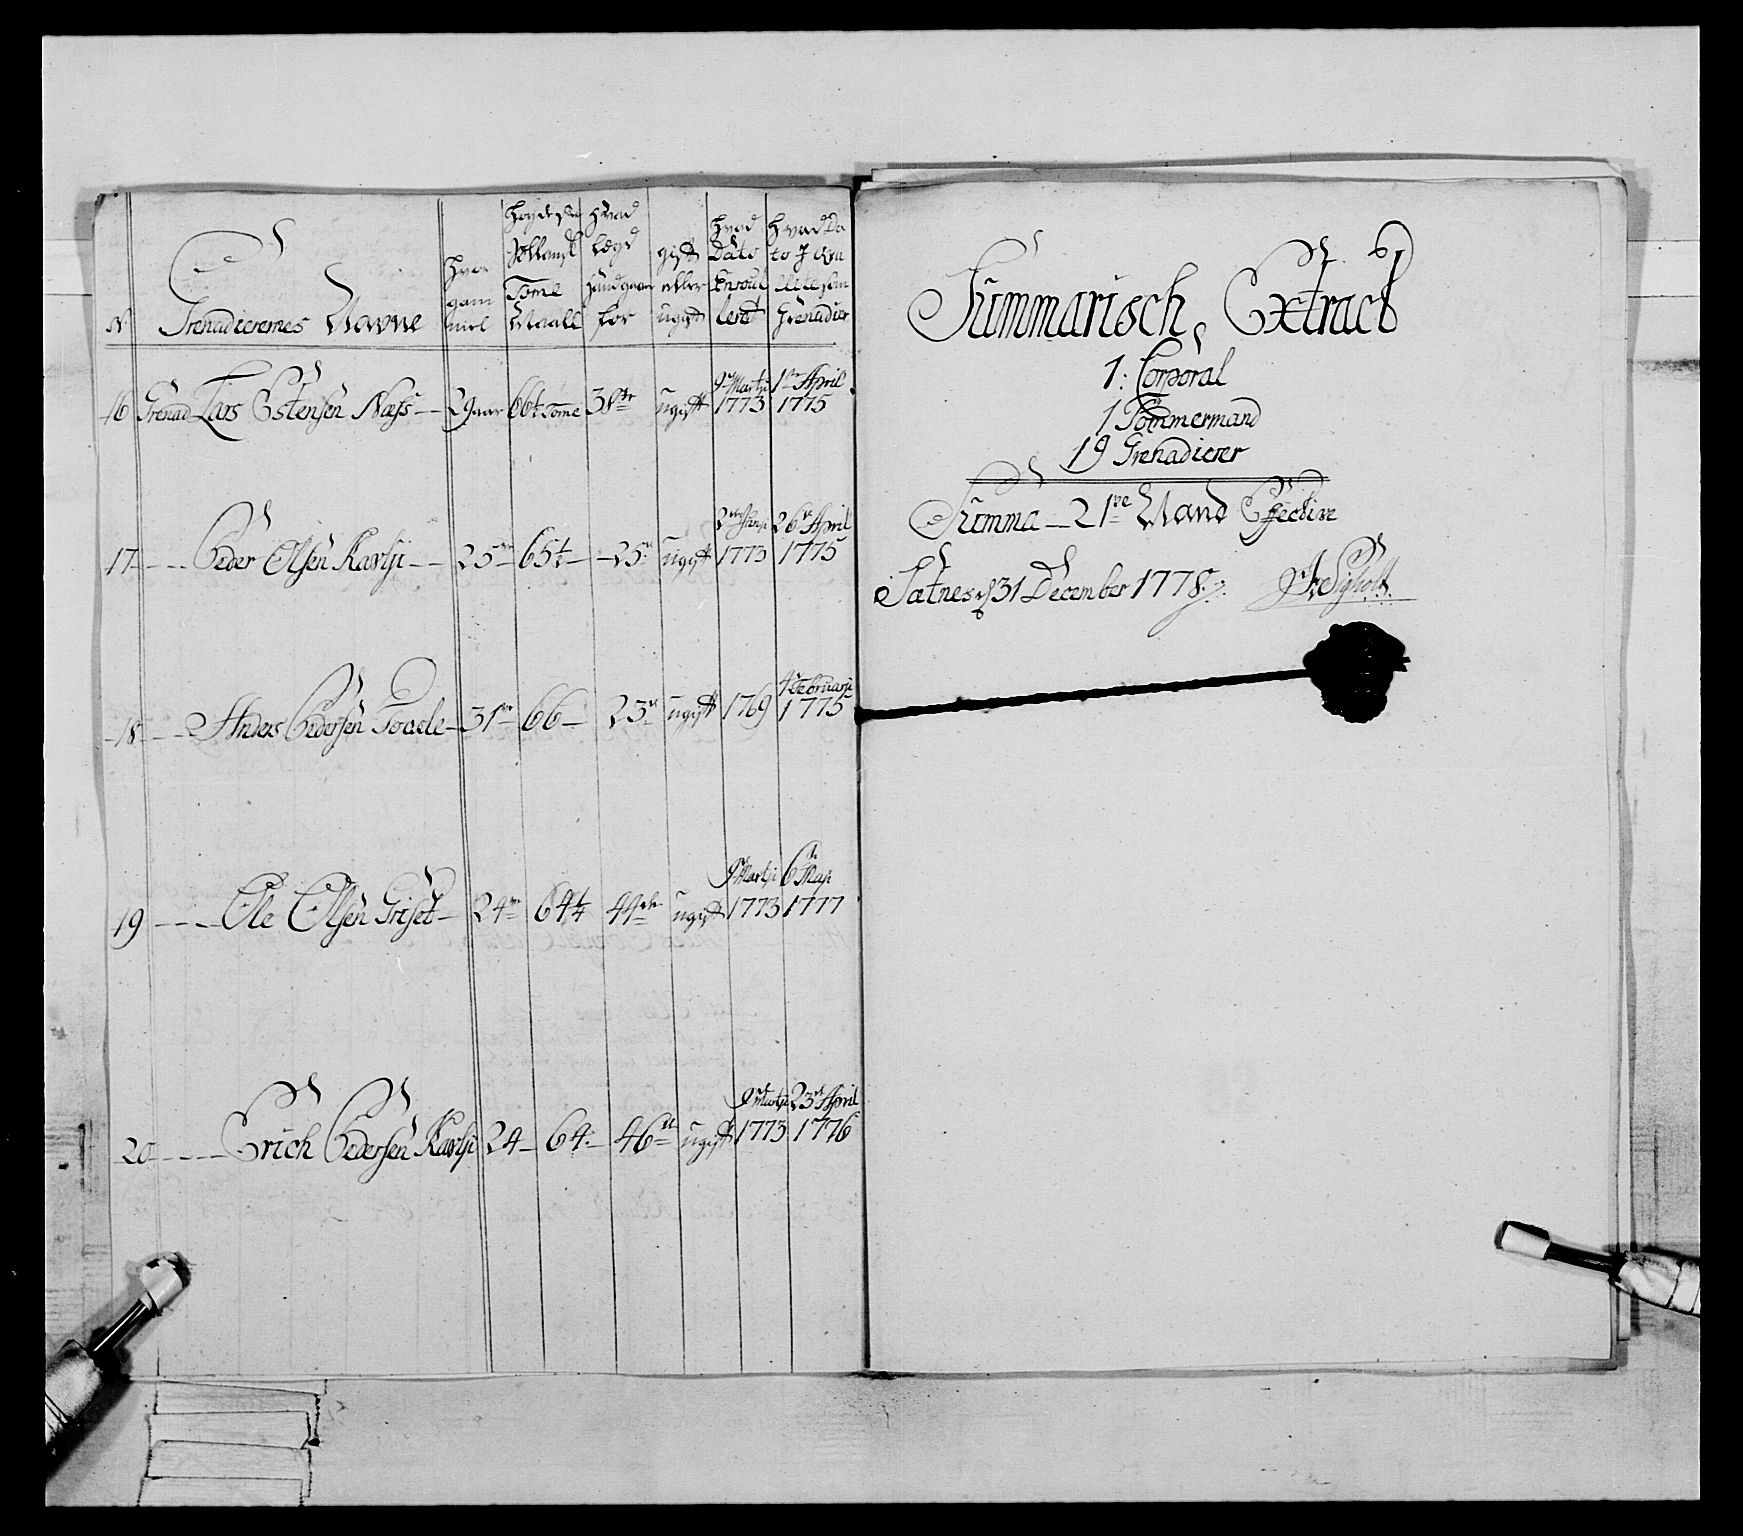 N:
Grenadierernes Navne
hvor gam mel
høyde Zollemst Tome Maall
hvad legd Handgaar for
gift eller ugift
hvad Dato Enroulleret
hvad Da to I Qva lite som Grenadier
16 Grenad Lars Estensen Næss -- 29 aar 66½ Tome 38te ugift 9 Martji 1773 1te April 1775
17 --- Peder Olsen Kavlji -- 25 65½ - 25 ugift 1773 26 April 1775
18 --- Anders Pedersen Toadle - 31 66 - 23 ugift 1769 4 Februarji 1775
19 --- Ole Olsen Griset - 24 64¼ 44 ugift 9 Martji 1773 6 Maji 1777
20 ---- Erich Pedersen Kavlji 24 - 64 - 46 ugift 9 Martji 1773 23 April 1776
Summarisch Extract
1: Corporal
1 Tømmermand
19 Grenadierer
Summa -- 21 Mand Effective
Sætnes d 31 December 1778